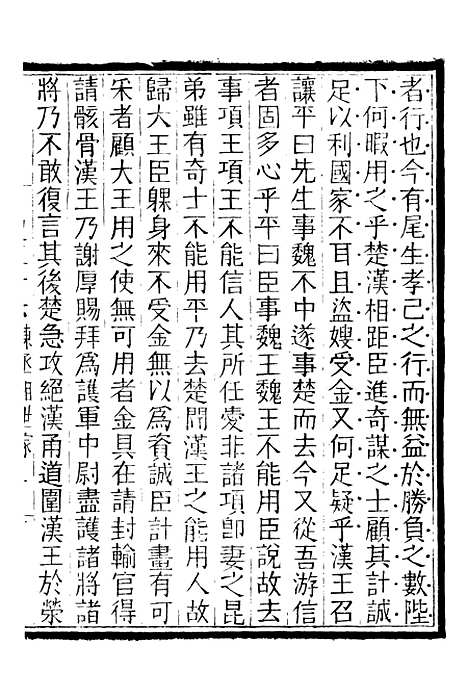 者行也今有尾生孝己之行而無益於勝負之數陛
下何暇用之乎楚漢相距臣進奇謀之士顧其計誠
足以利國家不耳且盜嫂受金又何足疑乎漢王召
讓平曰先生事魏不中遂事楚而去今又從吾游信
者固多心乎平曰臣事魏王魏王不能用臣說故去
事項王項王不能信人其所任愛非諸項卽妻之昆
弟雖有奇士不能用平乃去楚聞漢王之能用人故
歸大王臣躶身來不受金無以爲資誠臣計畫有可
采者顧大王用之使無可用者金具在請封輸官得
請骸骨漢王乃謝厚賜拜爲護軍中尉盡護諸將諸
將乃不敢復言其後楚急攻絕漢甬道圍漢王於滎